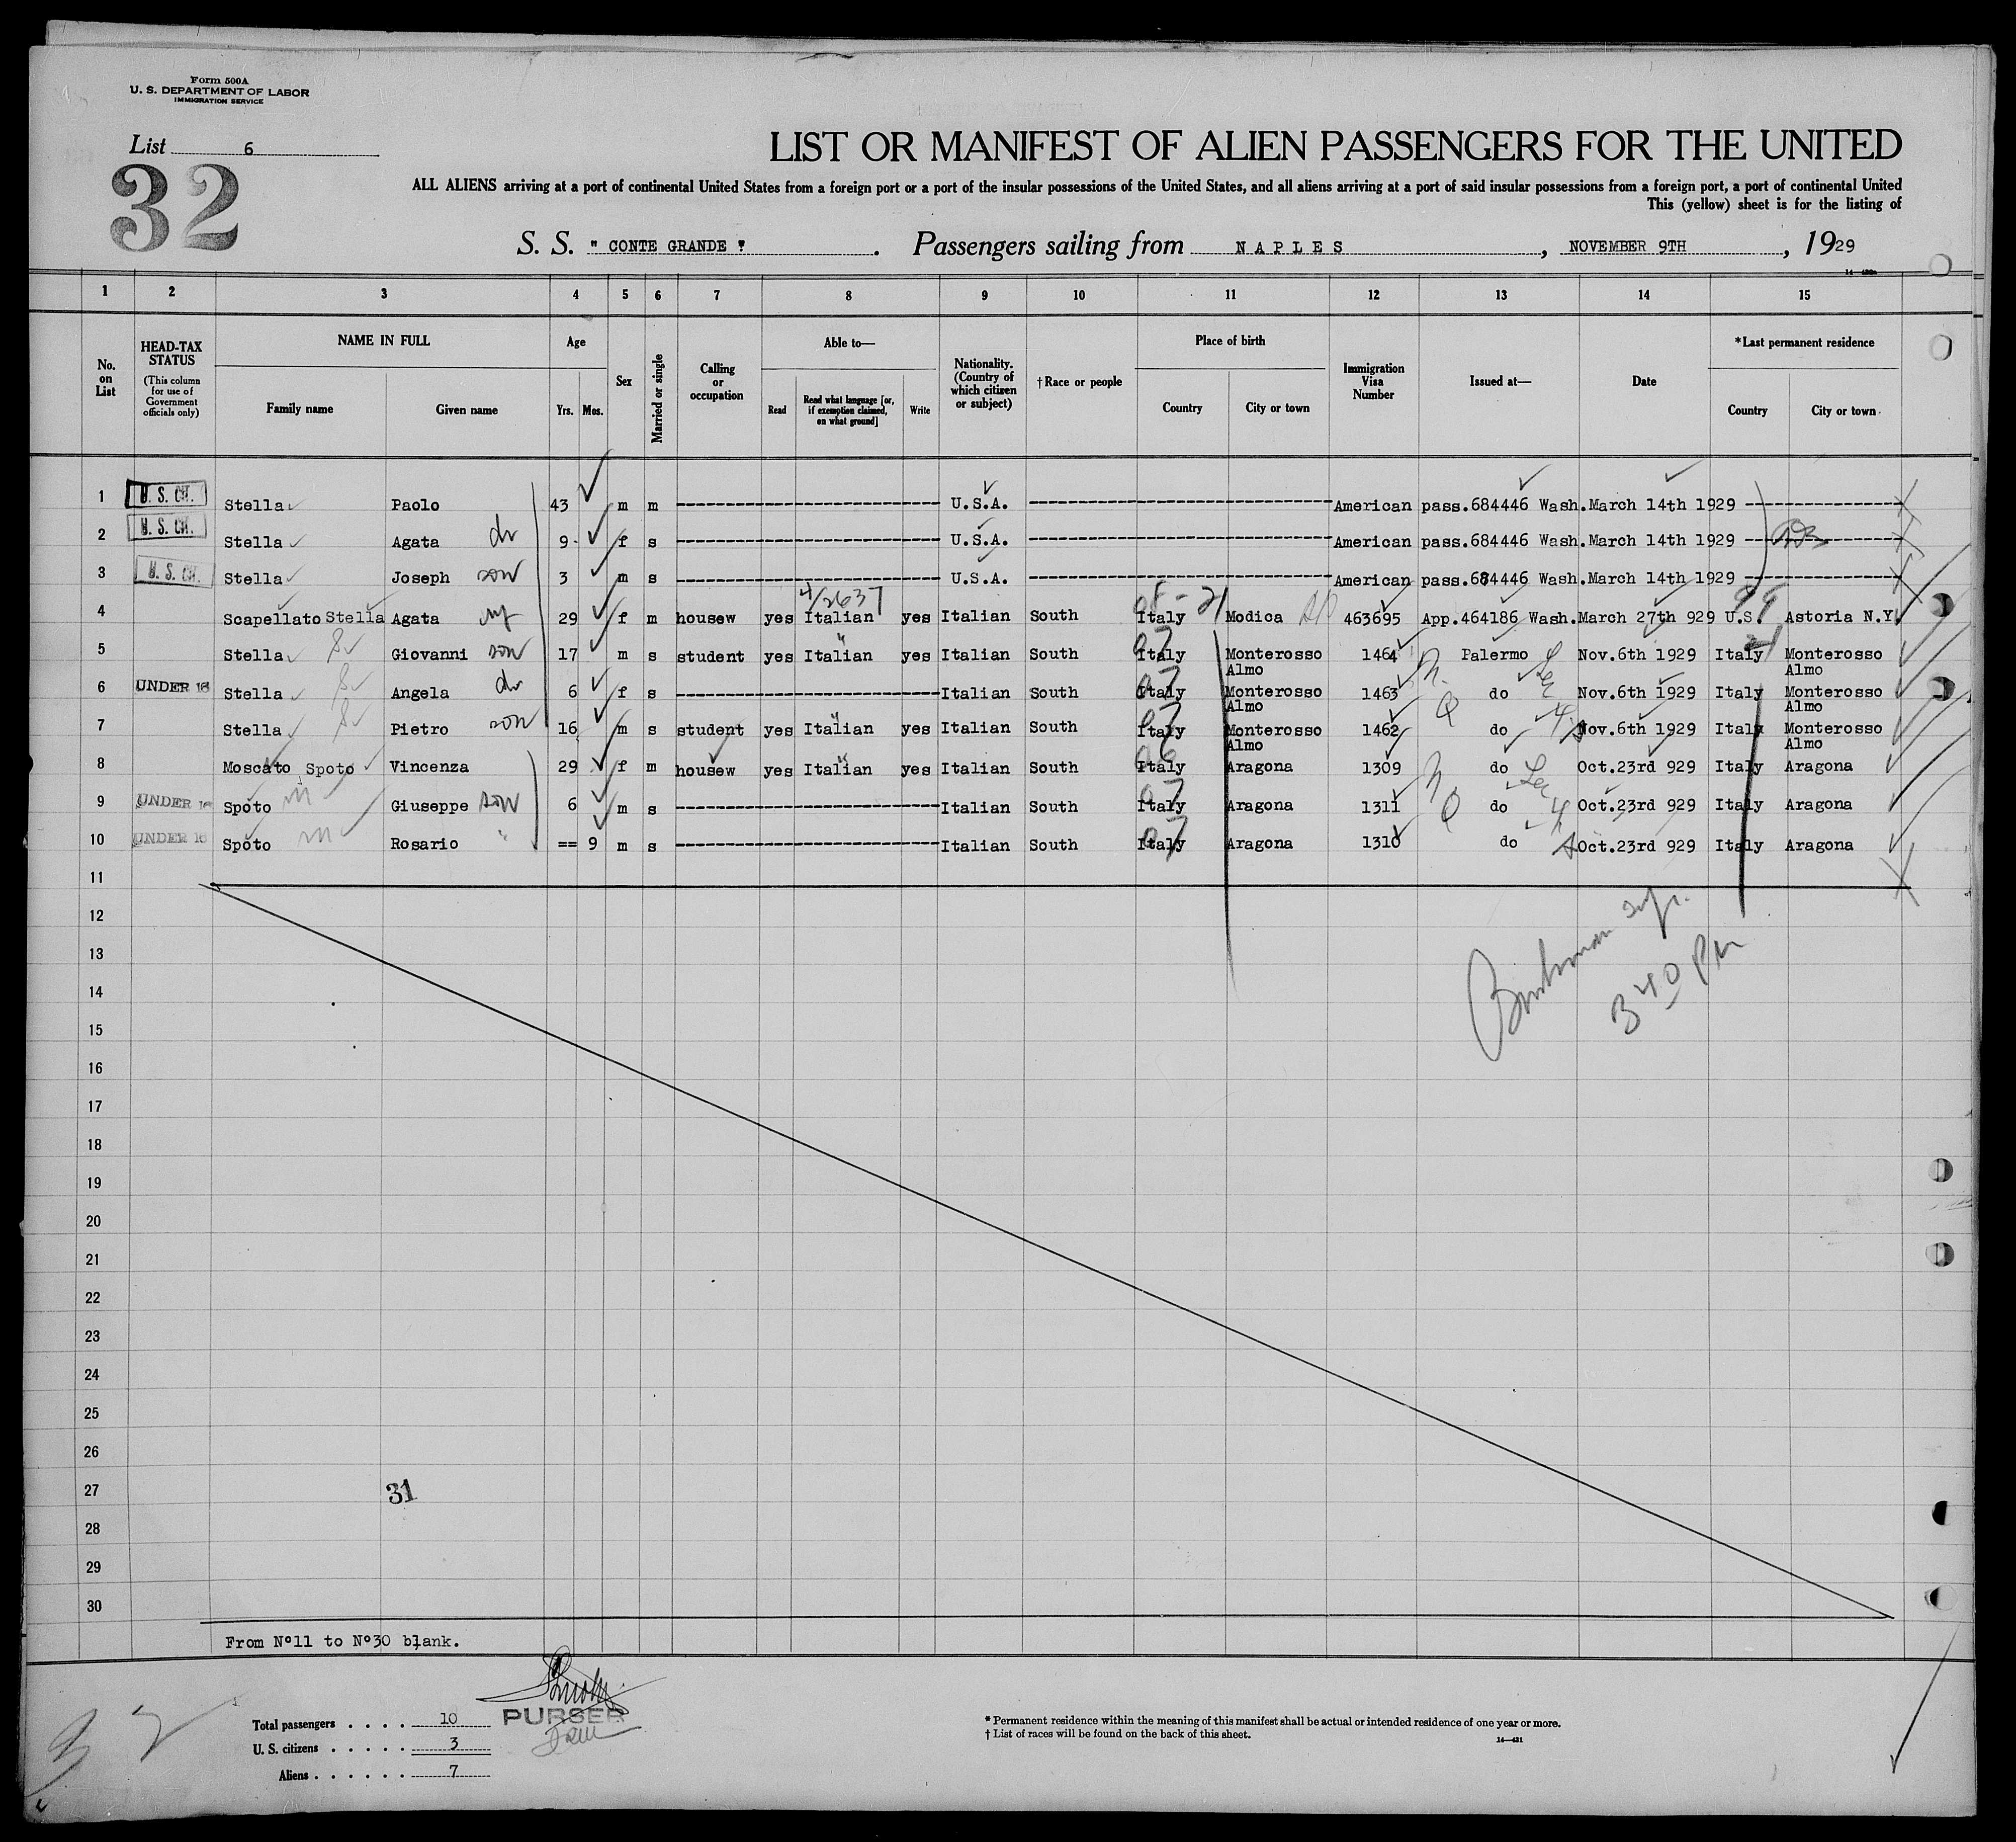 Form 500A
U. S. DEPARTMENT OF LABOR
IMMIGRATION SERVICE
List 6
32
LIST OR MANIFEST OF ALIEN PASSENGERS FOR THE UNITED
ALL ALIENS arriving at a port of continental United States from a foreign port or a port of the insular possessions of the United States, and all aliens arriving at a port of said insular possessions from a foreign port, a port of continental United
This (yellow) sheet is for the listing of
S. S. " CONTE GRANDE ". Passengers sailing from NAPLES, NOVEMBER 9TH, 1929
1 2 3 4 5 6 7 8 9 10 11 12 13 14 15
No. on List
HEAD-TAX STATUS
(This column for use of Government officials only)
NAME IN FULL
Family name Given name
Age
Yrs. Mos.
Sex
Married or single
Calling or occupation
Able to—
Read Read what language [or, if exemption claimed, on what ground] Write
Nationality. (Country of which citizen or subject)
†Race or people
Place of birth
Country City or town
Immigration Visa Number
Issued at—
Date
*Last permanent residence
Country City or town
1 U. S. CIT. Stella Paolo 43 m m U.S.A. American pass.684446 Wash.March 14th 1929
2 U. S. CIT. Stella Agata 9 f s U.S.A. American pass.684446 Wash.March 14th 1929
3 U. S. CIT. Stella Joseph son 3 m s U.S.A. American pass.684446 Wash.March 14th 1929
4 Scapellato Stella Agata 29 f m housew yes Italian yes Italian South Italy Modica 463695 App.464186 Wash.March 27th 929 U.S. Astoria N.Y.
5 Stella Giovanni son 17 m s student yes Italian yes Italian South Italy Monterosso Almo 1464 Palermo Nov.6th 1929 Italy Monterosso Almo
6 UNDER 16 Stella Angela 6 f s Italian South Italy Monterosso Almo 1463 do Nov.6th 1929 Italy Monterosso Almo
7 Stella Pietro son 16 m s student yes Italian yes Italian South Italy Monterosso Almo 1462 do Nov.6th 1929 Italy Monterosso Almo
8 Moscato Spoto Vincenza 29 f m housew yes Italian yes Italian South Italy Aragona 1309 do Oct.23rd 929 Italy Aragona
9 UNDER 16 Spoto Giuseppe son 6 m s Italian South Italy Aragona 1311 do Oct.23rd 929 Italy Aragona
10 UNDER 16 Spoto Rosario " == 9 m s Italian South Italy Aragona 1310 do Oct.23rd 929 Italy Aragona
11
12
13
14
15
16
17
18
19
20
21
22
23
24
25
26
27
28
29
30
3 40 PM
31
From N°11 to N°30 blank.
PURSER
Total passengers . . . . 10
U. S. citizens . . . . . 3
Aliens . . . . . . 7
* Permanent residence within the meaning of this manifest shall be actual or intended residence of one year or more.
† List of races will be found on the back of this sheet.
14—431
32